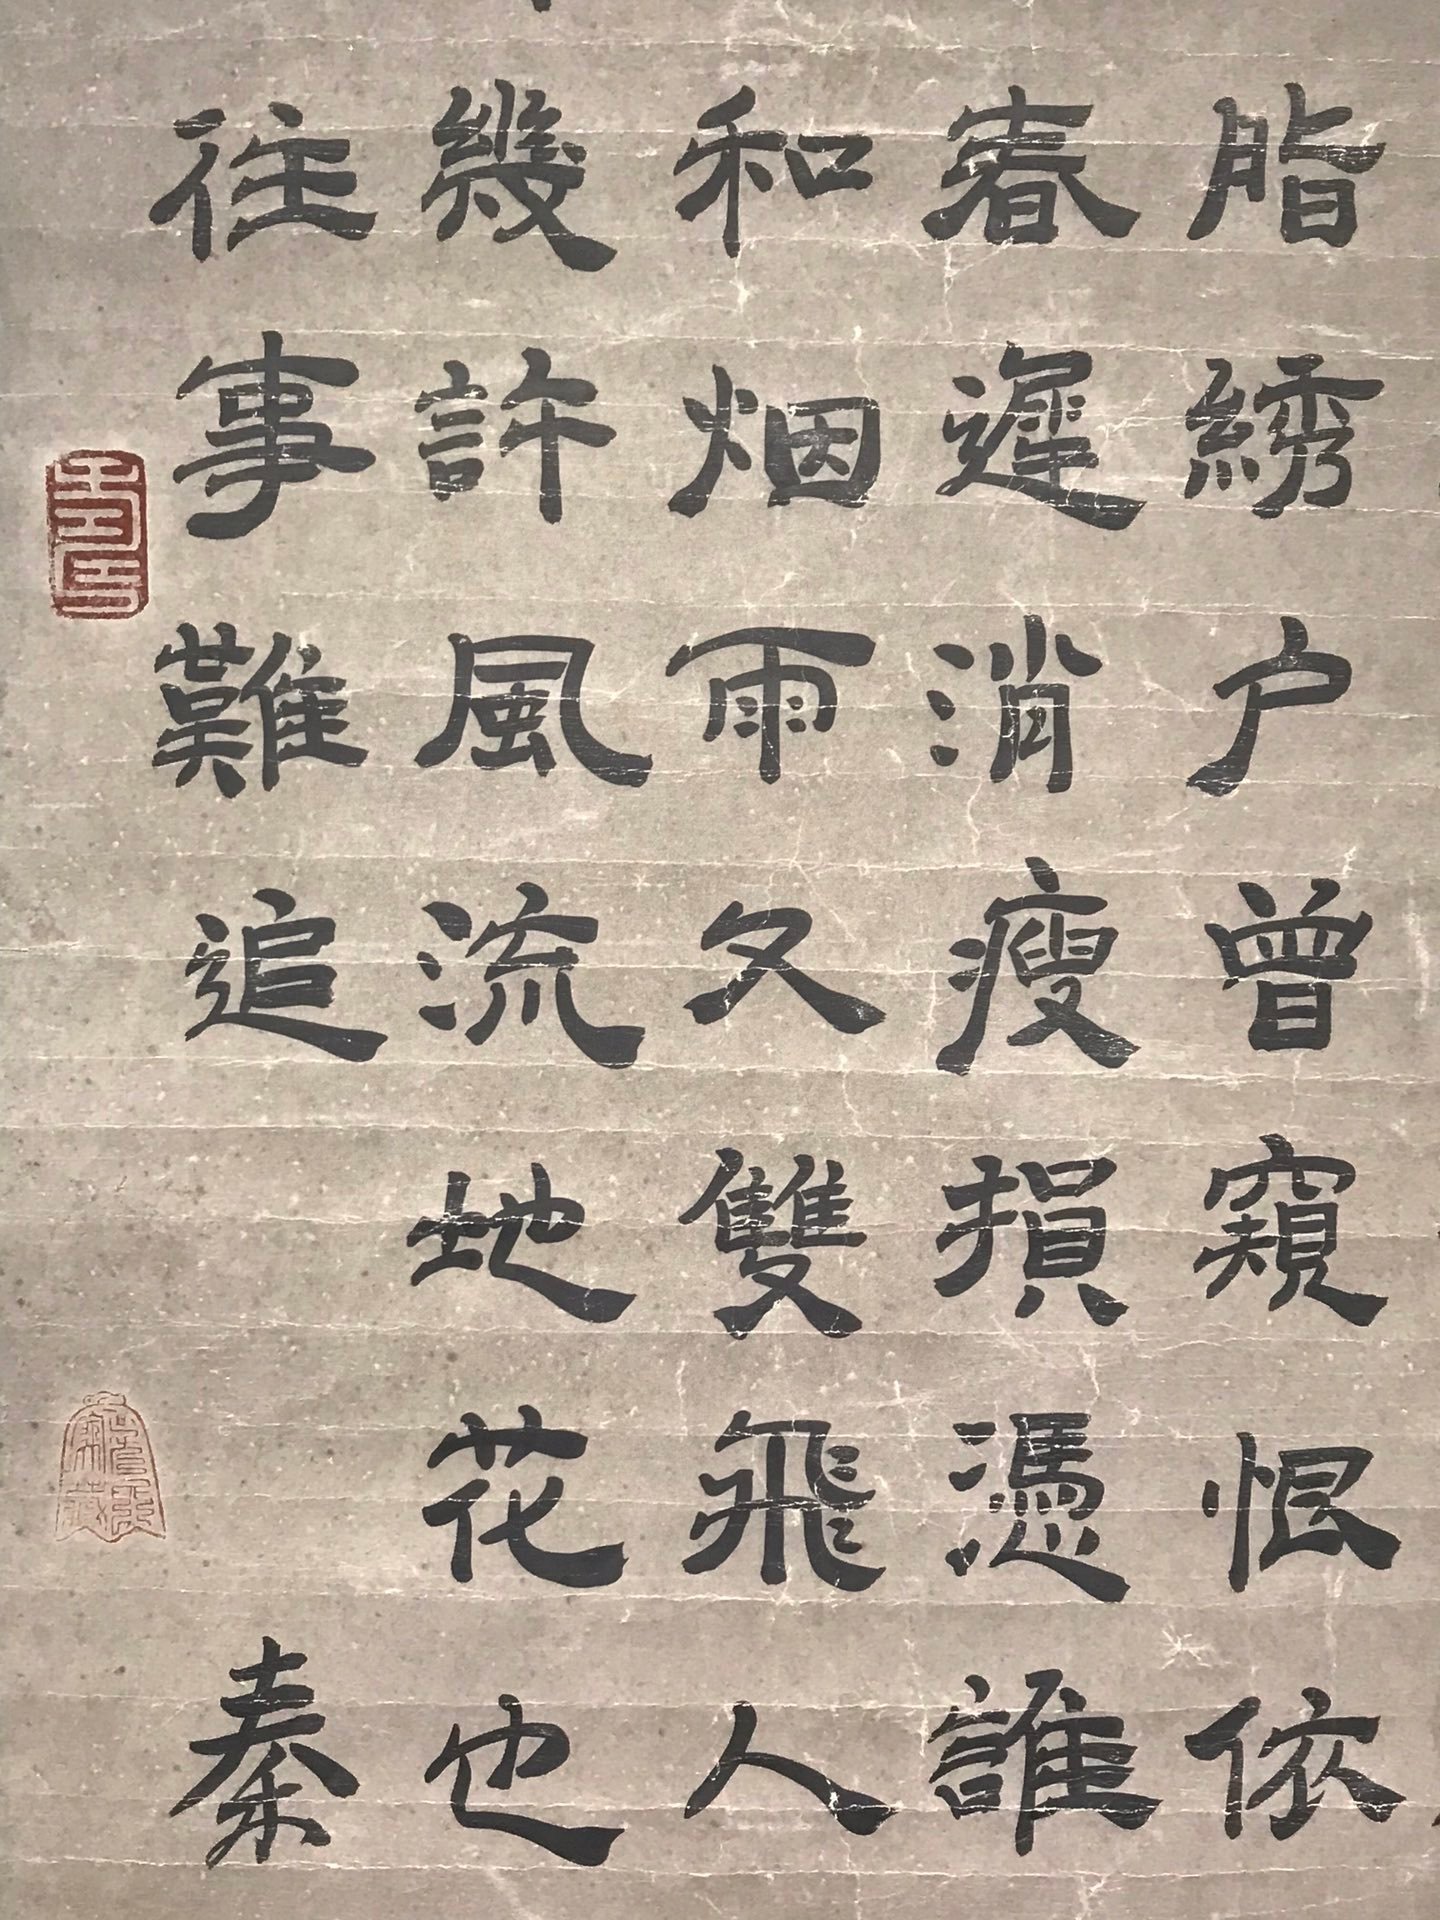 脂綉户曾窺恨依
春遲消瘦損憑誰
和烟雨又雙飛人
幾許風流地花也
往事難追 秦